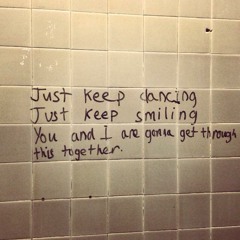 Just keep dancing
Just keep smiling
You and I are gonna get through
this together.